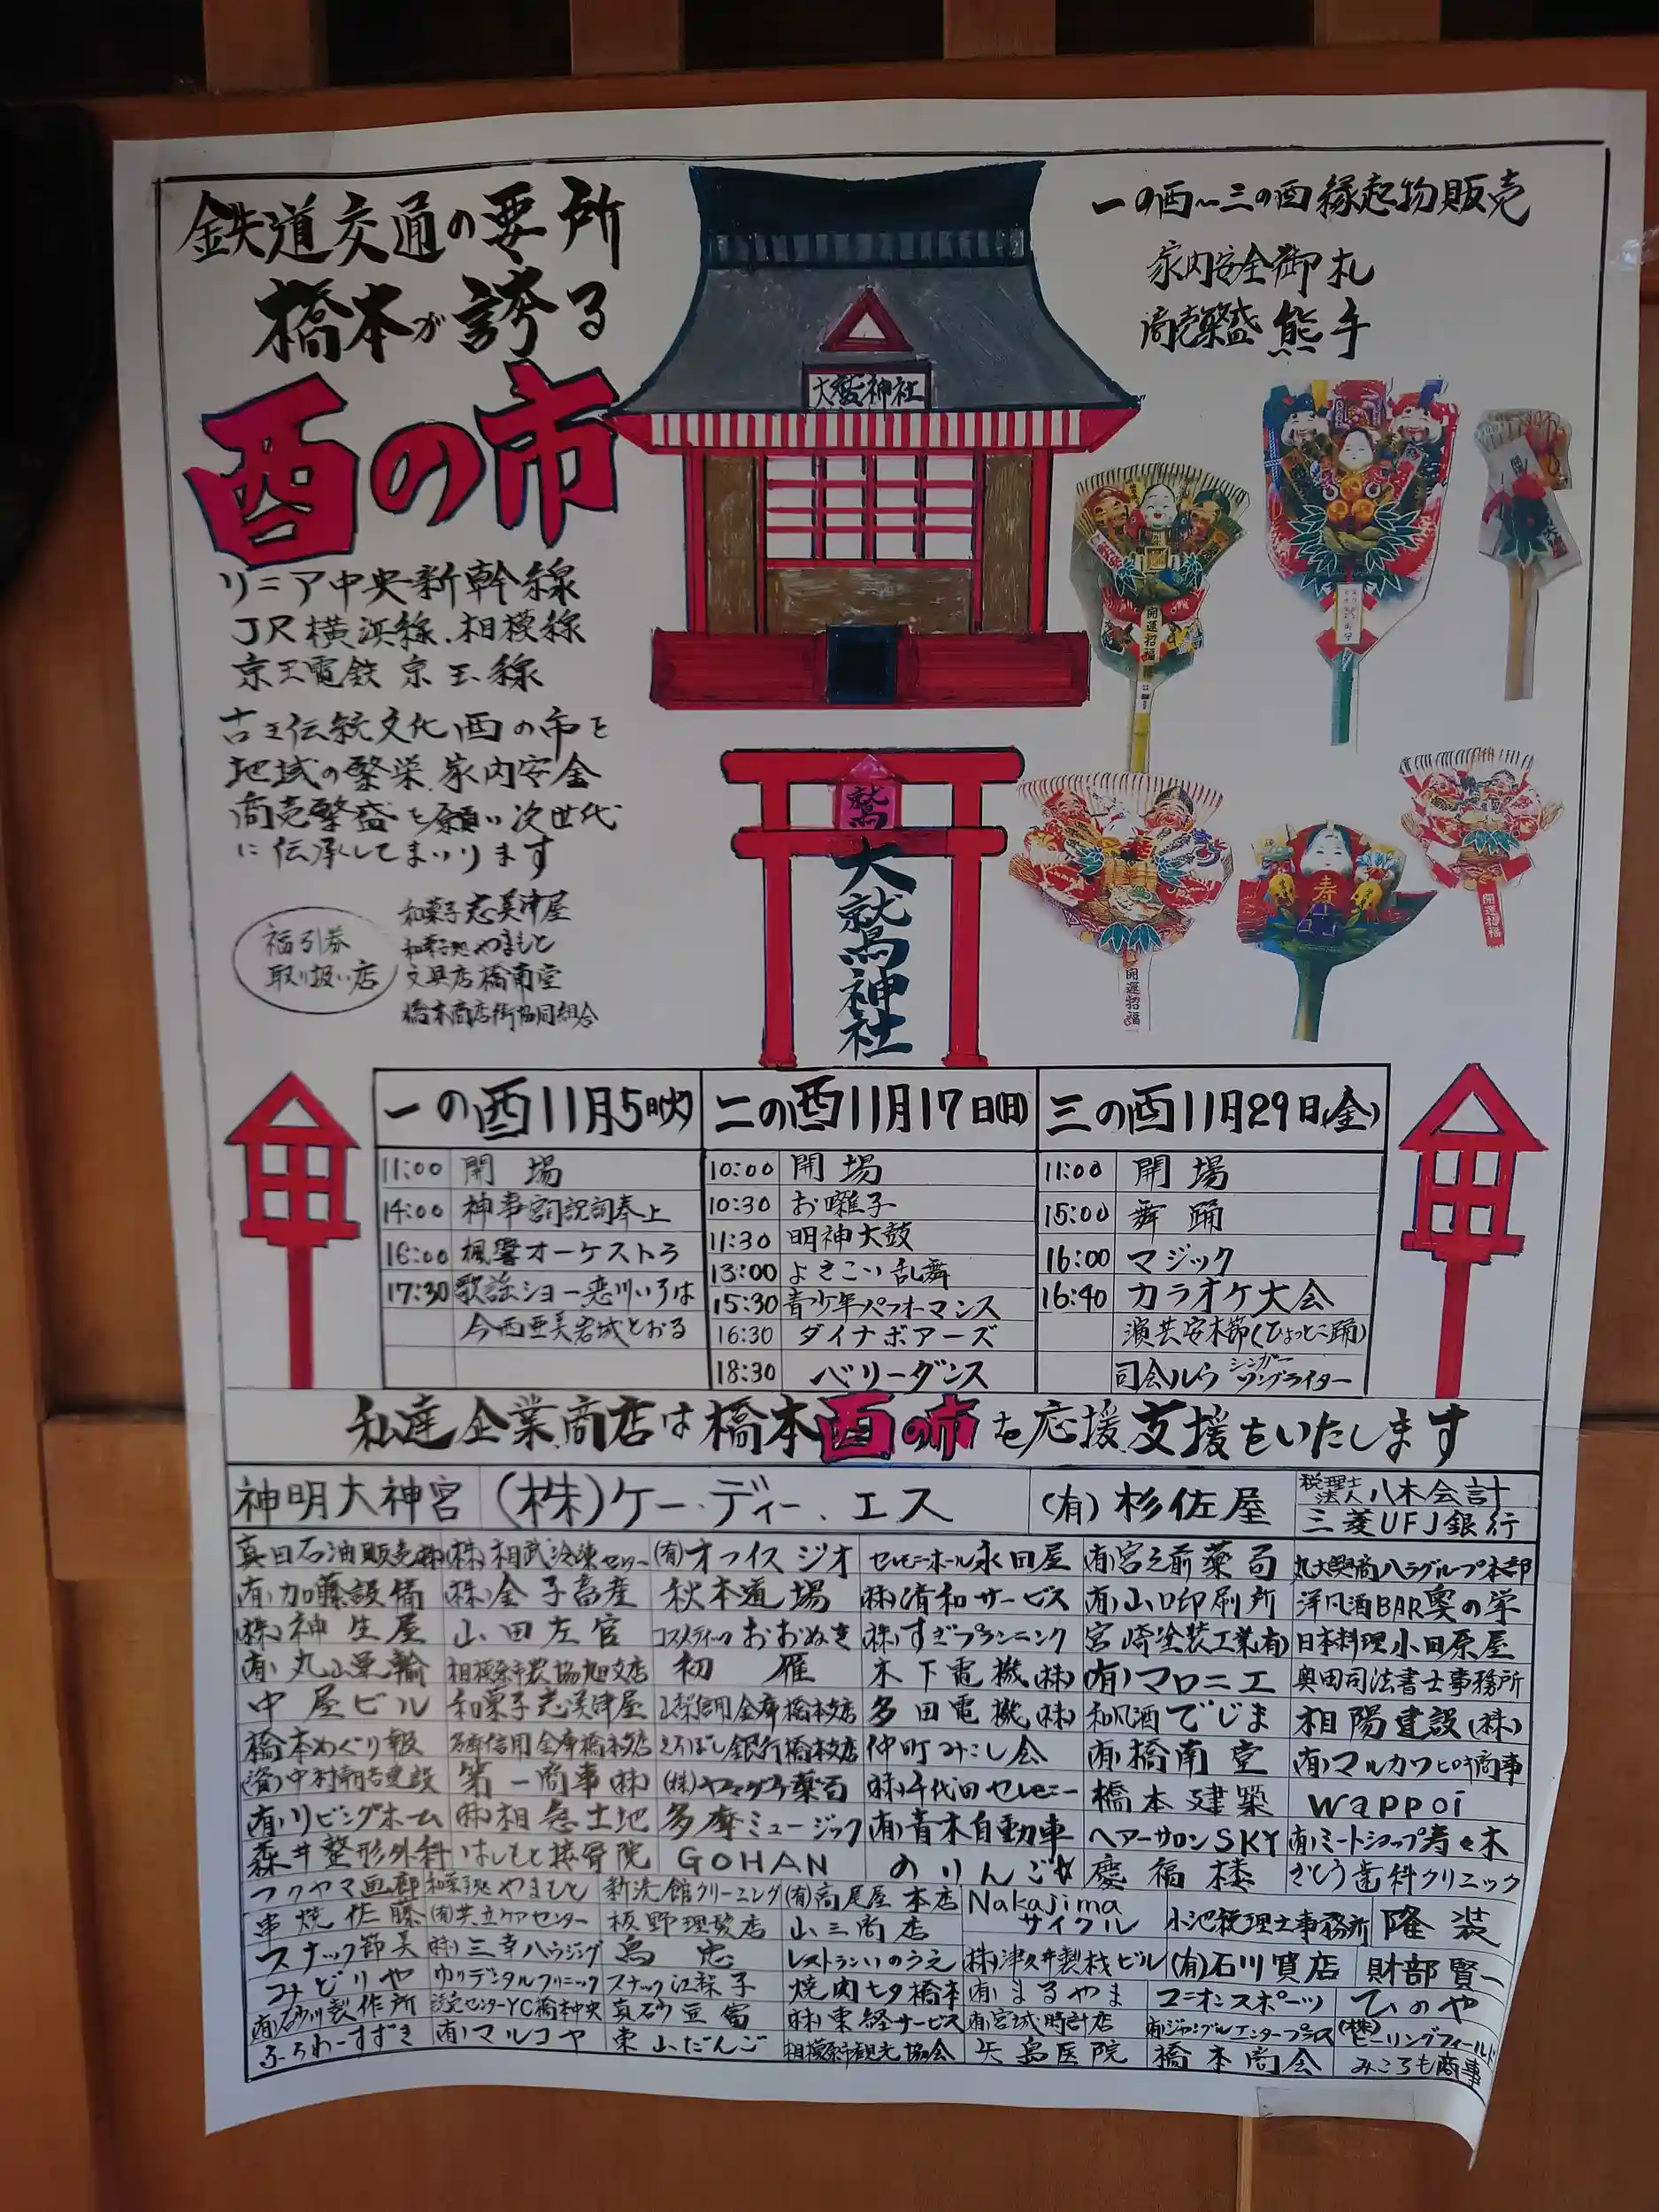 鉄道交通の要所
橋本が誇る
酉の市
リニア中央新幹線
JR横浜線.相模線
京王電鉄 京王線
古き伝統文化酉の市を
地域の繁栄.家内安全
商売繁盛を願い次世代
に伝承してまいります
福引券
取り扱い店
和菓子志美津屋
和菓子処やまもと
文具店橋南堂
橋本商店街協同組合
大鷲神社
一の酉〜三の酉縁起物販売
家内安全御札
商売繁盛 熊手
開運招福
寿
開運招福
開運招福
鷲
大鷲神社
一の酉11月5日(火)
11:00 開場
14:00 神事宮司祝詞奉上
16:00 楓響オーケストラ
17:30 歌謡ショー恋川いろは
今西亜美岩城とおる
二の酉11月17日(日)
10:00 開場
10:30 お囃子
11:30 明神太鼓
13:00 よさこい乱舞
15:30 青少年パフォーマンス
16:30 ダイナボアーズ
18:30 ベリーダンス
三の酉11月29日(金)
11:00 開場
15:00 舞踊
16:00 マジック
16:40 カラオケ大会
演芸安木節(ひょっとこ踊)
司会ルウ シンガーソングライター
私達企業商店は橋本酉の市を応援.支援をいたします
神明大神宮 (株)ケー.ディー.エス (有)杉佐屋 税理士法人八木会計
三菱UFJ銀行
真田石油販売(株) (株)相武冷凍センター (有)オフィスジオ セレモニーホール永田屋 (有)宮之前薬局 丸大興商ハラグループ本部
(有)加藤設備 (株)金子畜産 秋本道場 (株)清和サービス (有)山口印刷所 洋風酒BAR奥の栄
(株)神生屋 山田左官 コスメティックおおぬき (株)すぎプランニング 宮崎塗装工業(有) 日本料理小田原屋
(有)丸山車輪 相模原市農協旭支店 初雁 木下電機(株) (有)マロニエ 奥田司法書士事務所
中屋ビル 和菓子志美津屋 信用金庫橋本支店 多田電機(株) 和風酒でじま 相陽建設(株)
橋本めぐり報 多摩信用金庫橋本支店 きらぼし銀行橋本支店 仲町みこし会 (有)橋南堂 (有)マルカワヒロキ商事
(資)中村朝吉建設 第一商事(株) (株)ヤマグチ薬局 (株)千代田セレモニー 橋本建築 wappoi
(有)リビングホーム (株)相急土地 多摩ミュージック (有)青木自動車 ヘアーサロンSKY (有)ミートショップ寿々木
森井整形外科 はしもと接骨院 GOHAN のりんご 慶福楼 さとう歯科クリニック
フクヤマ画廊 和菓子処やまもと 新洗館クリーニング (有)高尾屋本店 Nakajimaサイクル 小池税理士事務所 隆装
串焼佐藤 (有)共立ケアセンター 板野理髪店 山三商店
スナック節美 (株)三幸ハウジング 鳥忠 レストランいのうえ (株)津久井製材ビル (有)石川質店 財部賢一
みどりや ゆりデンタルクリニック スナック江梨子 焼肉七夕橋本 (有)まるやま ユニオンスポーツ ひのや
(有)砂川製作所 読売センターYC橋本中央 真砂豆富 (株)東経サービス (有)宮城時計店 (有)ジャングルエンタープライズ (株)ヒーリングフィールド
ふらわーすずき (有)マルコヤ 東山だんご 相模原市観光協会 矢島医院 橋本商会 みころも商事